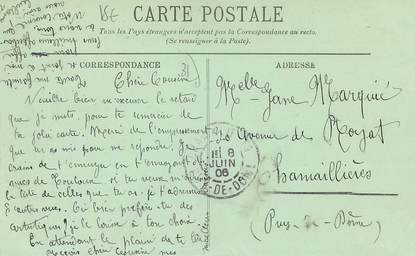 18€
CARTE POSTALE
Tous les Pays étrangers n'acceptent pas la Correspondance au recto.
(Se renseigner à la Poste.)
CORRESPONDANCE
ADRESSE
Chère Cousine
Veuille bien m'excuser le retard
que je mets, pour te remercier de
ta jolie carte.
que tu as mis pour me répondre. Je
crains de t'ennuyer en t'envoyant des
vues de Toulouse, si tu veux m'envoyer
la liste de celles que tu as, je t'adresserai
d'autres vues. Ou bien préfères-tu des
artistiques, je te laisse à ton choix.
En attendant le plaisir de te lire
reçois chère cousine mes
Melle Jane Marquié
Avenue de Royat
Chamaillières
(Puy-de-Dôme)
8
JUIN
06
-DE-DÔME